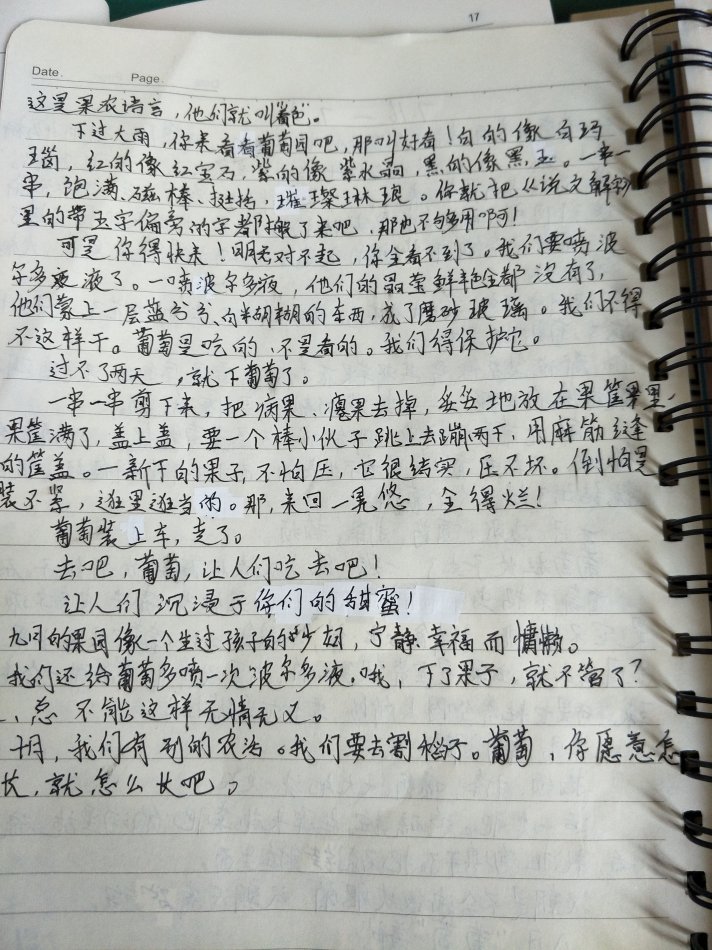 17
Date.
Page.
这是果农语言，他们就叫“着色”。
下过大雨，你来看看葡萄园吧，那叫好看！白的像白玛
瑙，红的像红宝石，紫的像紫水晶，黑的像黑玉。一串一
串，饱满、磁棒、挺括，璀璨琳琅。你就把《说文解字》
里的带玉字偏旁的字都搬了来吧，那也不够用啊！
可是你得快来！明天对不起，你全看不到了。我们要喷波
尔多液了。一喷波尔多液，他们的晶莹鲜艳全都没有了，
他们蒙上一层蓝兮兮、白糊糊的东西，成了磨砂玻璃。我们不得
不这样干。葡萄是吃的，不是看的。我们得保护它。
过不了两天，就下葡萄了。
一串一串剪下来，把病果、瘪果去掉，妥妥地放在果筐里。
果筐满了，盖上盖，要一个棒小伙子跳上去蹦两下，用麻筋缝
的筐盖。一新下的果子，不怕压，它很结实，压不坏。倒怕是
装不紧，逛里逛当的。那，来回一晃悠，全得烂！
葡萄装上车，走了。
去吧，葡萄，让人们吃去吧！
让人们沉浸于你们的甜蜜！
九月的果园像一个生过孩子的少妇，宁静、幸福而慵懒。
我们还给葡萄多喷一次波尔多液。哦，下了果子，就不管了？
人，总不能这样无情无义。
十月，我们有别的农活。我们要去割稻子。葡萄，你愿意怎
长，就怎么长吧。